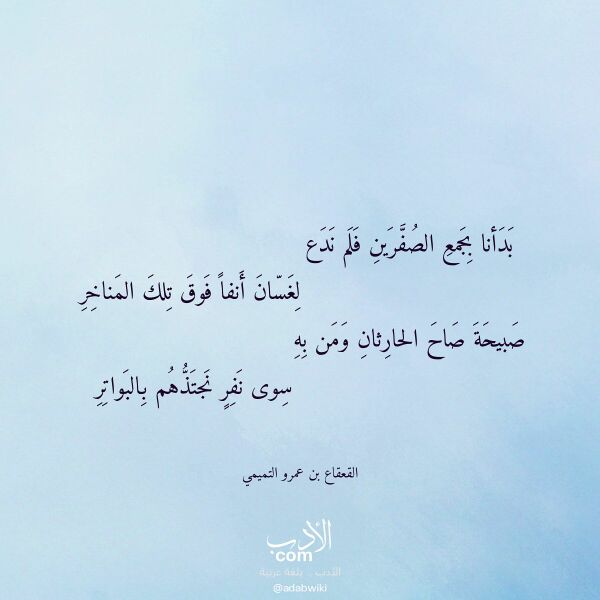 بَدَأنا بِجَمعِ الصُفَّرَينِ فَلَم نَدَع
لِغَسّانَ أَنفاً فَوقَ تِلكَ المَناخِرِ
صَبيحَةَ صَاحَ الحارِثانِ وَمَن بِهِ
سِوى نَفِرٍ نَجتَذُّهُم بِالبَواتِرِ
القعقاع بن عمرو التميمي
الأدب
com
الأدب .. بلغة عربية
@adabwiki